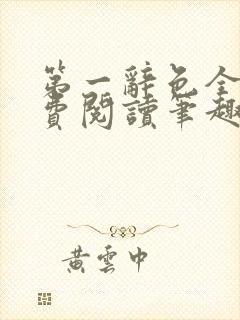 第一辭色全
費閱讀筆趣
黃雲中